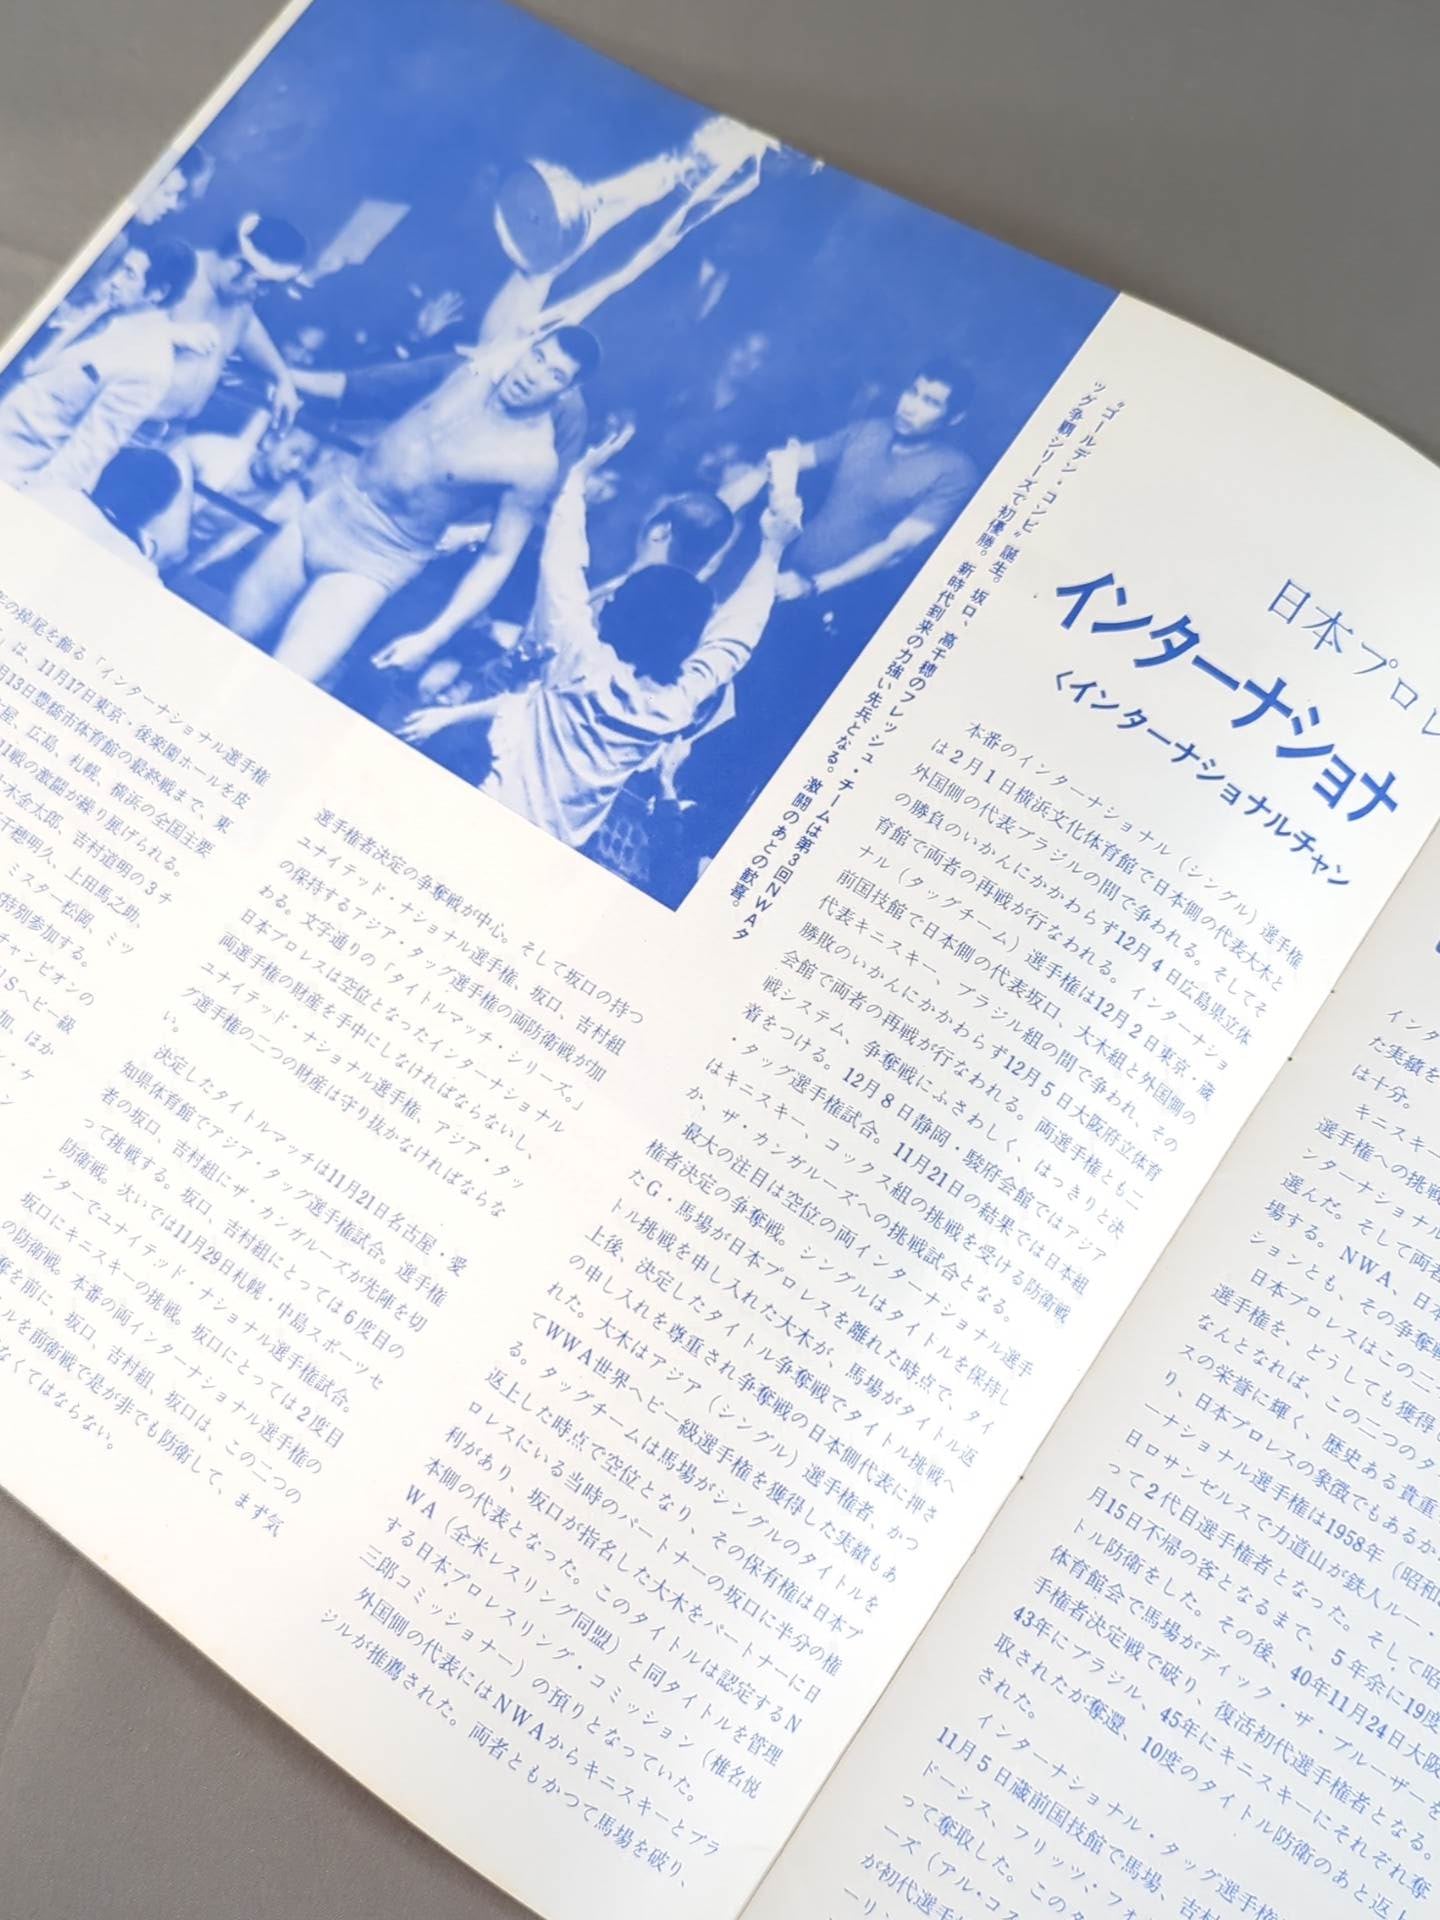 日本プロレ
インターナショナ
〈インターナショナルチャン
“ゴールデン・コンビ”誕生。坂口、高千穂のフレッシュ・チームは第3回NWAタ
ッグ争覇シリーズで初優勝。新時代到来の力強い先兵となる。激闘のあとの歓喜。
年の掉尾を飾る「インターナショナル選手権
」は、11月17日東京・後楽園ホールを皮
月13日豊橋市体育館の最終戦まで、東
古屋、広島、札幌、横浜の全国主要
11戦の激闘が繰り展げられる。
大木金太郎、吉村道明の3チ
千穂明久、上田馬之助、
ミスター松岡、ミッ
特別参加する。
チャンピオンの
USヘビー級
加、ほか
ン・ケ
ン
選手権者決定の争奪戦が中心。そして坂口の持つ
ユナイテッド・ナショナル選手権、坂口、吉村組
の保持するアジア・タッグ選手権の両防衛戦が加
わる。文字通りの「タイトルマッチ・シリーズ。」
日本プロレスは空位となったインターナショナル
両選手権の財産を手中にしなければならないし、
ユナイテッド・ナショナル選手権、アジア・タッ
グ選手権の二つの財産は守り抜かなければならな
い。
決定したタイトルマッチは11月21日名古屋・愛
知県体育館でアジア・タッグ選手権試合。選手権
者の坂口、吉村組にザ・カンガルーズが先陣を切
って挑戦する。坂口、吉村組にとっては6度目の
防衛戦。次いでは11月29日札幌・中島スポーツセ
ンターでユナイテッド・ナショナル選手権試合。
坂口にキニスキーの挑戦。坂口にとっては2度目
の防衛戦。本番の両インターナショナル選手権の
奪を前に、坂口、吉村組、坂口は、この二つの
ルを前衛戦で是が非でも防衛して、まず気
なくてはならない。
本番のインターナショナル（シングル）選手権
は2月1日横浜文化体育館で日本側の代表大木と
外国側の代表ブラジルの間で争われる。そしてそ
の勝負のいかんにかかわらず12月4日広島県立体
育館で両者の再戦が行なわれる。インターナショ
ナル（タッグチーム）選手権は12月2日東京・蔵
前国技館で日本側の代表坂口、大木組と外国側の
代表キニスキー、ブラジル組の間で争われ、その
勝敗のいかんにかかわらず12月5日大阪府立体育
会館で両者の再戦が行なわれる。両選手権とも二
戦システム、争奪戦にふさわしく、はっきりと決
着をつける。12月8日静岡・駿府会館ではアジア
・タッグ選手権試合。11月21日の結果では日本組
はキニスキー、コックス組の挑戦を受ける防衛戦
か、ザ・カンガルーズへの挑戦試合となる。
最大の注目は空位の両インターナショナル選手
権者決定の争奪戦。シングルはタイトルを保持し
たG・馬場が日本プロレスを離れた時点で、タイ
トル挑戦を申し入れた大木が、馬場がタイトル返
上後、決定したタイトル争奪戦でタイトル挑戦へ
の申し入れを尊重され争奪戦の日本側代表に押さ
れた。大木はアジア（シングル）選手権者、かつ
てWWA世界ヘビー級選手権を獲得した実績もあ
る。タッグチームは馬場がシングルのタイトルを
返上した時点で空位となり、その保有権は日本プ
ロレスにいる当時のパートナーの坂口に半分の権
利があり、坂口が指名した大木をパートナーに日
本側の代表となった。このタイトルは認定するN
WA（全米レスリング同盟）と同タイトルを管理
する日本プロレスリング・コミッション（椎名悦
三郎コミッショナー）の預りとなっていた。
外国側の代表にはNWAからキニスキーとブラ
ジルが推薦された。両者ともかつて馬場を破り、
インタ
た実績を
は十分。
キニスキー
選手権への挑戦
ンターナショナル
選んだ。そして両者
場する。NWA、日本
ションとも、その争奪戦
日本プロレスはこの二つ
選手権を、どうしても獲得し
なんとなれば、この二つのタ
スの栄誉に輝く、歴史ある貴重
り、日本プロレスの象徴でもあるか
ーナショナル選手権は1958年（昭和
日ロサンゼルスで力道山が鉄人ルー・
って2代目選手権者となった。そして昭
月15日不帰の客となるまで、5年余に19度
トル防衛をした。その後、40年11月24日大阪
体育館会で馬場がディック・ザ・ブルーザーを
手権者決定戦で破り、復活初代選手権者となる。
43年にブラジル、45年にキニスキーにそれぞれ奪
取されたが奪還、10度のタイトル防衛のあと返上
された。
インターナショナル・タッグ選手権
11月5日蔵前国技館で馬場、吉村
ドーシス、フリッツ・フォ
って奪取した。このタ
ーズ（アル・コス
が初代選手
ーリ、